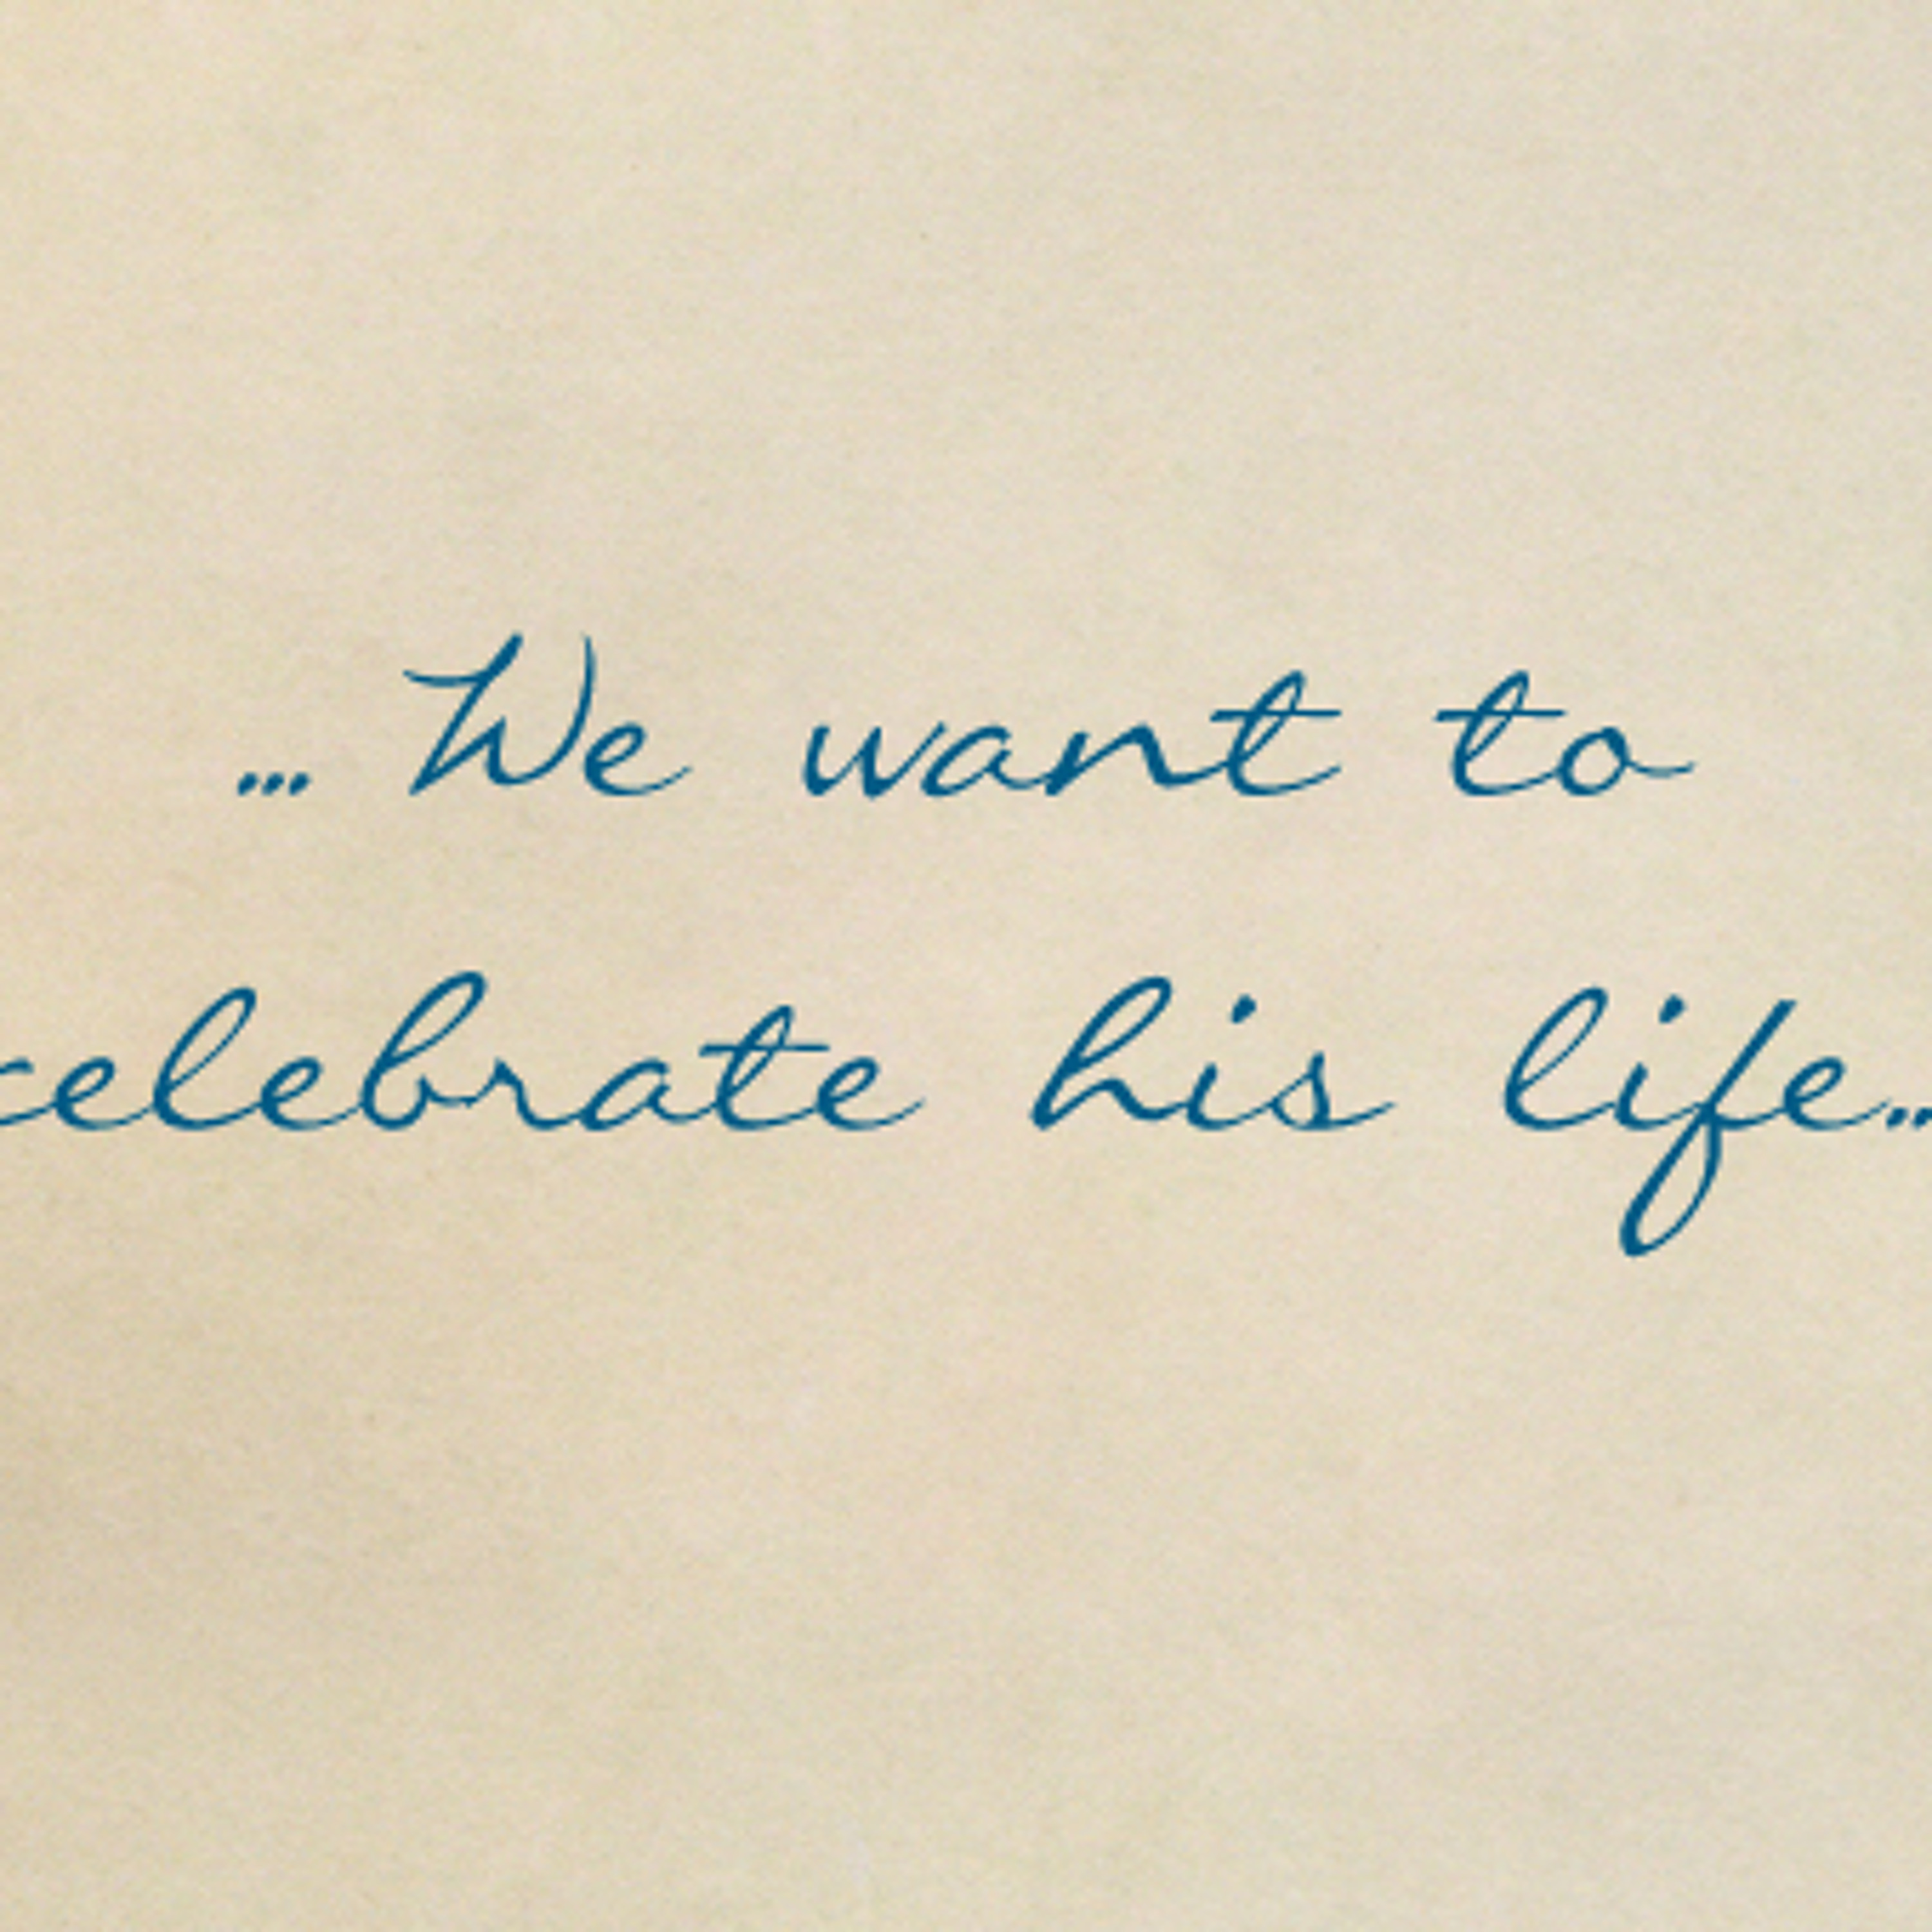 ... We want to
celebrate his life...